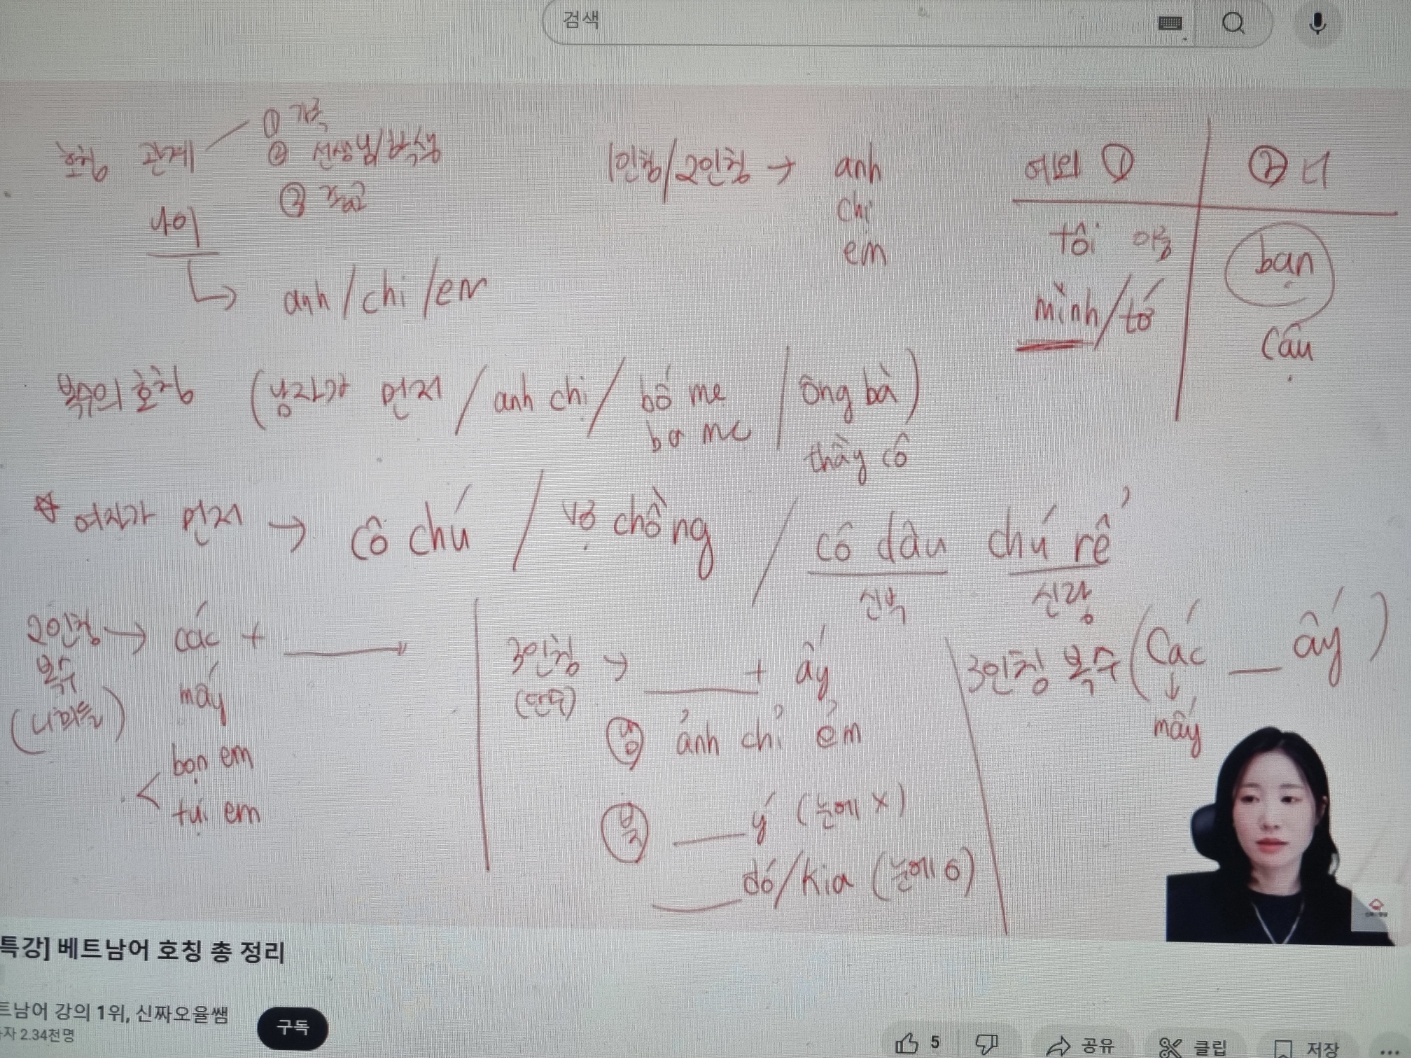 검색
호칭 관계
① 가족
② 선생님/학생
③ 직급
나이
anh/chị/em
1인칭/2인칭 → anh
chị
em
예외 ① | ② 너
tôi 이름 | bạn
mình/tớ | cậu
복수의 호칭 (남자가 먼저 / anh chị / bố mẹ / ông bà)
ba mẹ
thầy cô
☆ 여자가 먼저 → cô chú / vợ chồng / cô dâu chú rể
신부 신랑
2인칭 → các + ___
복수 mấy
(너희들)
bọn em
tụi em
3인칭 → ___ + ấy
(단수)
남 ảnh chỉ ẻm
북 ___ý (눈에 X)
___đó/kia (눈에 O)
3인칭 복수 (các ___ ấy)
↓
mấy
특강] 베트남어 호칭 총 정리
트남어 강의 1위, 신짜오율쌤
자 2.34천명
구독
5
공유
클립
저장
...